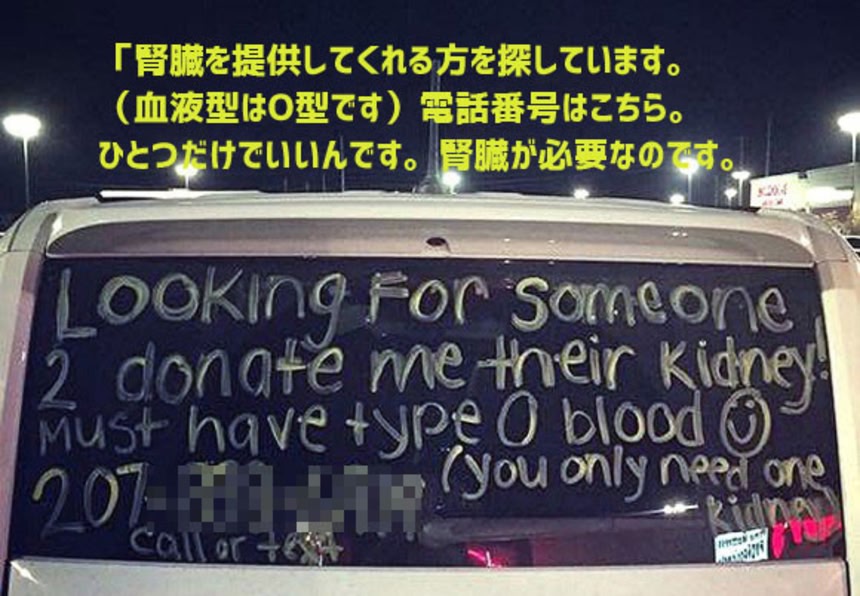 「腎臓を提供してくれる方を探しています。
（血液型はO型です）電話番号はこちら。
ひとつだけでいいんです。腎臓が必要なのです。
Looking For Someone
2 donate me their Kidney!
Must have type O blood
207
(you only need one
kidney)
call or text